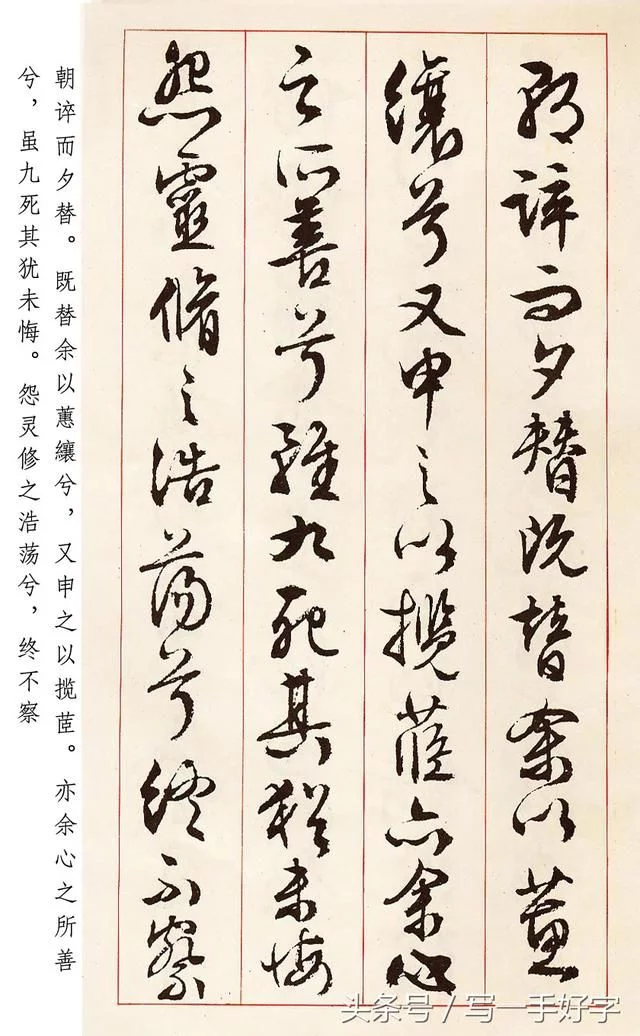 朝谇而夕替既替余以蕙
纕兮又申之以揽茝亦余心
之所善兮虽九死其犹未悔
怨灵修之浩荡兮终不察
朝谇而夕替。既替余以蕙纕兮，又申之以揽茝。亦余心之所善
兮，虽九死其犹未悔。怨灵修之浩荡兮，终不察
头条号 / 写一手好字